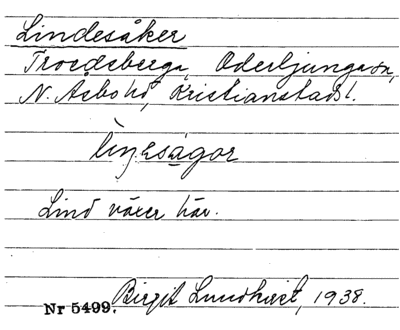 Lindesåker
Troedsberga, Oderljunga sn,
N. Åsbo hd, Kristianstads l.
Lind växer här.
Nr 5499. Birgit Lundkvist, 1938.